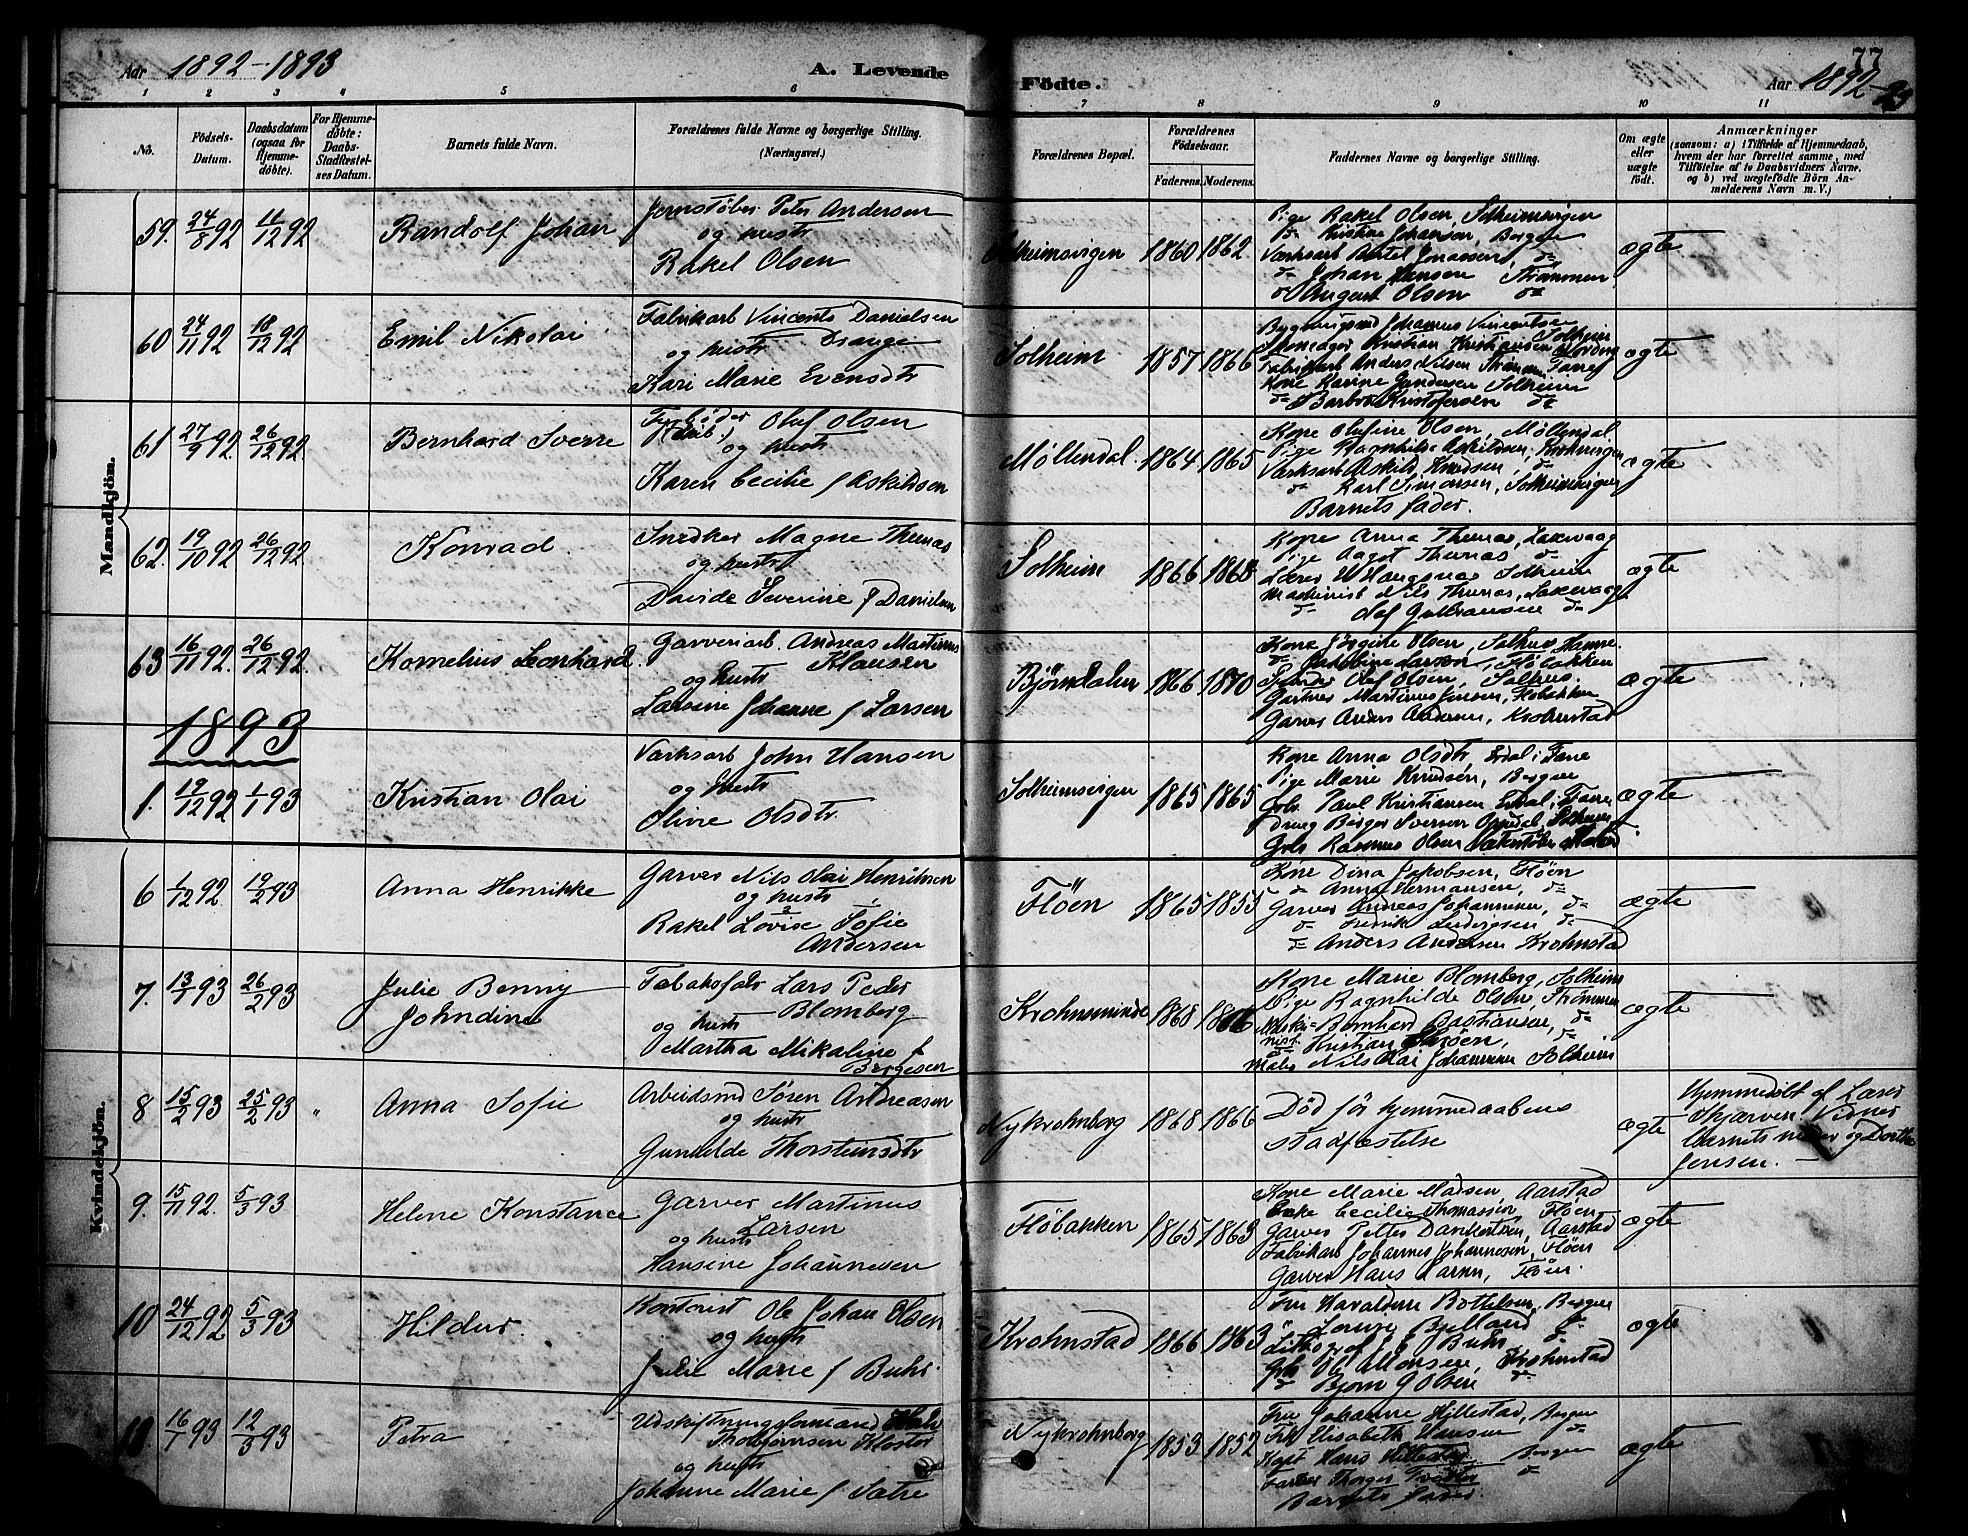 Aar 1892-1893
A. Levende
Födte.
77
Aar 1892-93
1 2 3 4 5 6 7 8 9 10 11
No.
Födsels-Datum.
Daabsdatum (ogsaa for Hjemmedöbte).
For Hjemmedöbte: Daabs-Stadfæstelses Datum.
Barnets fulde Navn.
Forældrenes fulde Navne og borgerlige Stilling. (Næringsvei.)
Forældrenes Bopæl.
Forældrenes Födselsaar.
Faderens. Moderens.
Faddernes Navne og borgerlige Stilling.
Om ægte eller uægte födt.
Anmærkninger
(saasom: a) i Tilfælde af Hjemmedaab, hvem der har forrettet samme, med Tilföielse af to Daabsvidners Navne, og b) ved uægtefödte Börn Anmelderens Navn m. V.)
Mandkjön.
59. 24/8 92 11/12 92 Randolf Johan
Jernstøber Peter Andersen
og hustr
Rakel Olsen
Solheimsvigen 1860 1862
Pige Rakel Olsen, Solheimsvigen
do Kristine Johansen, Bergen
Værksarb Bertel Jonassen, do
do Johan Hansen Strømmen
do August Olsen do
ægte
60 24/11 92 18/12 92 Emil Nikolai
Fabrikarb Vincents Danielsen
og hustr Drange
Kari Marie Evensdtr
Solheim 1857 1866
Johannes Vincentsen
Kristian Kristiansen
Fabrikarb Anders Nilsen Strømmen
Kone Karine Gundersen Solheim
do Barbro Kristofersen do
ægte
61 27/9 92 26/12 92 Bernhard Sverre
Oluf Olsen
og hustr
Karen Cecilie f Askildsen
Møllendal. 1864 1865
Kone Olufine Olsen, Møllendal
Pige Ragnhilde Askildsen,
Værksarb Askild Knudsen, do
do Karl Simonsen, Solheimsvigen
Barnets fader.
ægte
62. 19/10 92 26/12 92 Konrad.
Snedker Magne Thunæs
og hustr
Davide Severine f Danielsen
Solheim 1866 1868
Kone Anna Thunæs, Laxevaag
Pige Aagot Thunæs do
Lærer W Haugsnæs Solheim
Maskinist Nils Thunæs, Laxevaag
do Olaf Gulbransen do
ægte
63 16/11 92. 26/12 92. Kornelius Leonhard.
Garveriarb. Andreas Martinus
og hustr Klausen
Larsine Johanne f Larsen
Bjørndalen 1866 1870
Kone Jørgine Olsen, Solhus,
do Jakobine Larsen, Fløbakken
Olaf Olsen, Solhus.
Gartner Martinus Jensen, Fløbakken
Garver Anders Andersen, Krohnstad
ægte
1893
1. 19/12 92 1/1 93 Kristian Olai
Værksarb John Hansen
og hustr
Oline Olsdtr.
Solheimsvigen 1865 1865
Kone Anna Olsdtr, Erdal i Fane
Pige Marie Knudsen, Bergen
Paul Kristiansen Erdal, Fane
Dreng Birger Iversen
Rasmus Olsen
ægte
Kvindekjön.
6 1/12 92. 19/2 93 Anna Henrikke
Garver Nils Olai Henriksen
og hustr
Rakel Lovise Sofie
Andersen
Fløen 1865 1855
Kone Dina Jakobsen, Fløen
do Anna Hermansen, do
Garver Andreas Johannesen, do
do Fredrik Ludvigsen do
do Anders Andersen Krohnstad
ægte
7. 13/1 93 26/2 93 Julie Benny
Johndine
Tobaksfabr Lars Peder
og hustr Blomberg
Martha Mikaline f
Børgesen
Krohnsminde 1868
Kone Marie Blomberg, Solheim
Pige Ragnhilde Olsen, Strømmen
Maski- Bernhard Bastiansen, do
nist
Kristian
Maler Nils Olai Johannesen Solheim
ægte
8 15/2 93 25/2 93 " Anna Sofie
Arbeidsmd Søren Andreasen
og hustr
Gunhilde Thorsteinsdtr
Nykrohnborg 1868 1866
Død før hjemmedaabens
stadfæstelse
ægte
Hjemmedøbt af Lærer
Skjærven Vidner
barnets moder og Dorthe
Jensen.
9. 15/11 92. 5/3 93 Helene Konstance
Garver Martinus
Larsen
og hustr
Hansine Johannesen
Fløbakken 1865 1863
Kone Marie Madsen, Aarstad
Enke Cecilie Thomassen, Fløen
Garver Petter Dankertsen, Aarstad
Fabrikarb Johannes Johannesen, Fløen
Garver Hans Larsen, Fløen.
ægte
10 24/12 92 5/3 93 Hildur.
Kontorist Ole Johan Olsen
og hustr
Julie Marie f Buhr.
Krohnstad 1866 1863
Fru Haraldine Bottelsen, Bergen
Lovise Bjelland do
Litograf J E Buhr do
O Monsen, Krohnstad
do Bjørn G Olsen do
ægte
16/1 93 12/3 93 Petra
Udskiftningsformand
Thobjørnsen Kloster
og hustr
Johanne Marie f Sætre
Nykrohnborg 1853 1852
Fru Johanne Hillestad, Bergen
Frk Elisabeth Hansen do
Kapt Hans Hillestad Bergen
Thorger
Barnets fader.
ægte